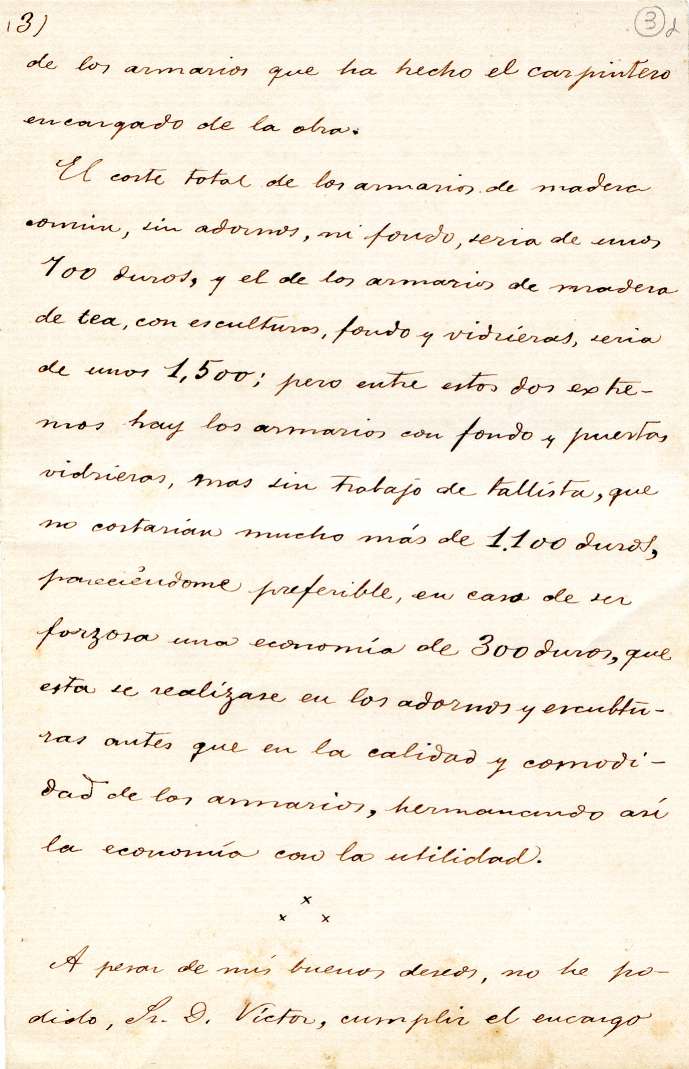 (3) 3
de los armarios que ha hecho el carpintero
encargado de la obra.
El coste total de los armarios de madera
comun, sin adornos, ni fondo, seria de unos
700 duros, y el de los armarios de madera
de tea, con esculturas, fondo y vidrieras, seria
de unos 1,500; pero entre estos dos extre-
mos hay los armarios con fondo y puertas
vidrieras, mas sin trabajo de tallista, que
no costarían mucho más de 1.100 duros,
pareciéndome preferible, en caso de ser
forzosa una economía de 300 duros, que
esta se realizase en los adornos y escultu-
ras antes que en la calidad y comodi-
dad de los armarios, hermanando así
la economía con la utilidad.
x
x x
A pesar de mis buenos deseos, no he po-
dido, Sr. D. Víctor, cumplir el encargo